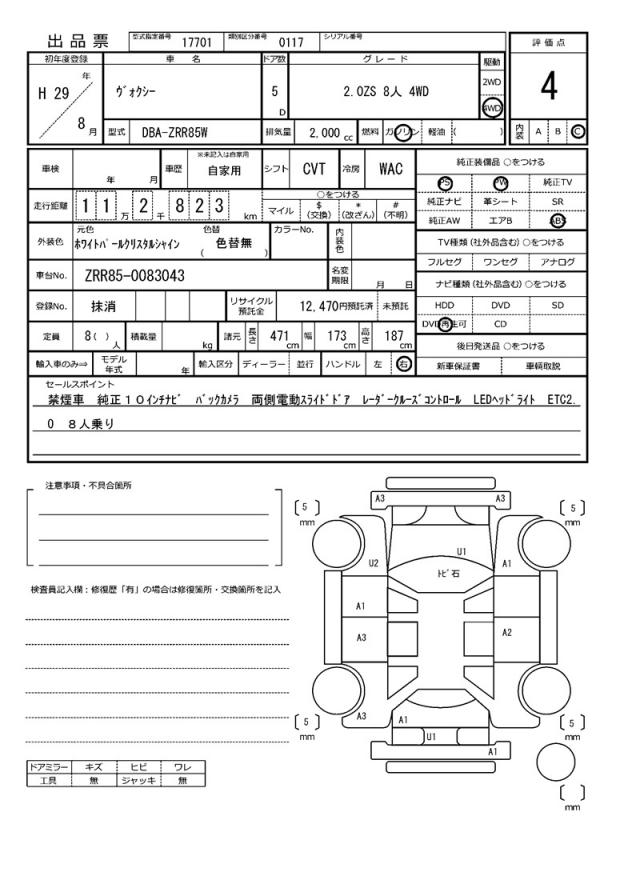 出品票 型式指定番号 17701 類別区分番号 0117 シリアル番号
初年度登録 車名 ドア数 グレード 駆動 評価点
H 29 年 8 月 ヴォクシー 5 D 2.0ZS 8人 4WD 2WD 4WD 4
型式 DBA-ZRR85W 排気量 2,000 cc 燃料 ガソリン 軽油 ( ) 内装 A B C
車検 年 月 車歴 ※未記入は自家用 自家用 シフト CVT 冷房 WAC 純正装備品 ○をつける
PS PW 純正TV
走行距離 11万2千823 km ○をつける
マイル $(交換) *(改ざん) #(不明) 純正ナビ 革シート SR
純正AW エアB ABS
外装色 元色 ホワイトパールクリスタルシャイン 色替 ( 色替無 ) カラーNo. 内装色 TV種類(社外品含む)○をつける
フルセグ ワンセグ アナログ
車台No. ZRR85-0083043 名変期限 月 日 ナビ種類(社外品含む)○をつける
登録No. 抹消 リサイクル預託金 12,470円預託済 未預託 HDD DVD SD
DVD再生可 CD
定員 8( )人 積載量 kg 諸元 長さ 471 cm 幅 173 cm 高さ 187 cm 後日発送品 ○をつける
輸入車のみ⇒ モデル年式 年 輸入区分 ディーラー 並行 ハンドル 左 右 新車保証書 車輌取説
セールスポイント
禁煙車 純正10インチナビ バックカメラ 両側電動スライドドア レーダークルーズコントロール LEDヘッドライト ETC2.
0 8人乗り
注意事項・不具合箇所
検査員記入欄:修復歴「有」の場合は修復箇所・交換箇所を記入
A3 A3
[5] mm [5] mm
U2 U1 A1
トビ石
A1
A3 A2
A3 A1
[5] mm U1 [5] mm
A1
[ ] mm
ドアミラー キズ ヒビ ワレ
工具 無 ジャッキ 無